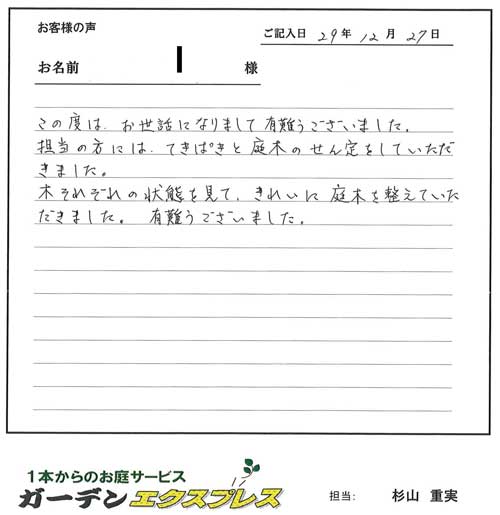 お客様の声
ご記入日 29年 12月 27日
お名前 様
この度は、お世話になりまして有難うございました。
担当の方には、てきぱきと庭木のせん定をしていただ
きました。
木それぞれの状態を見て、きれいに庭木を整えていた
だきました。 有難うございました。
1本からのお庭サービス
ガーデンエクスプレス
担当: 杉山 重実